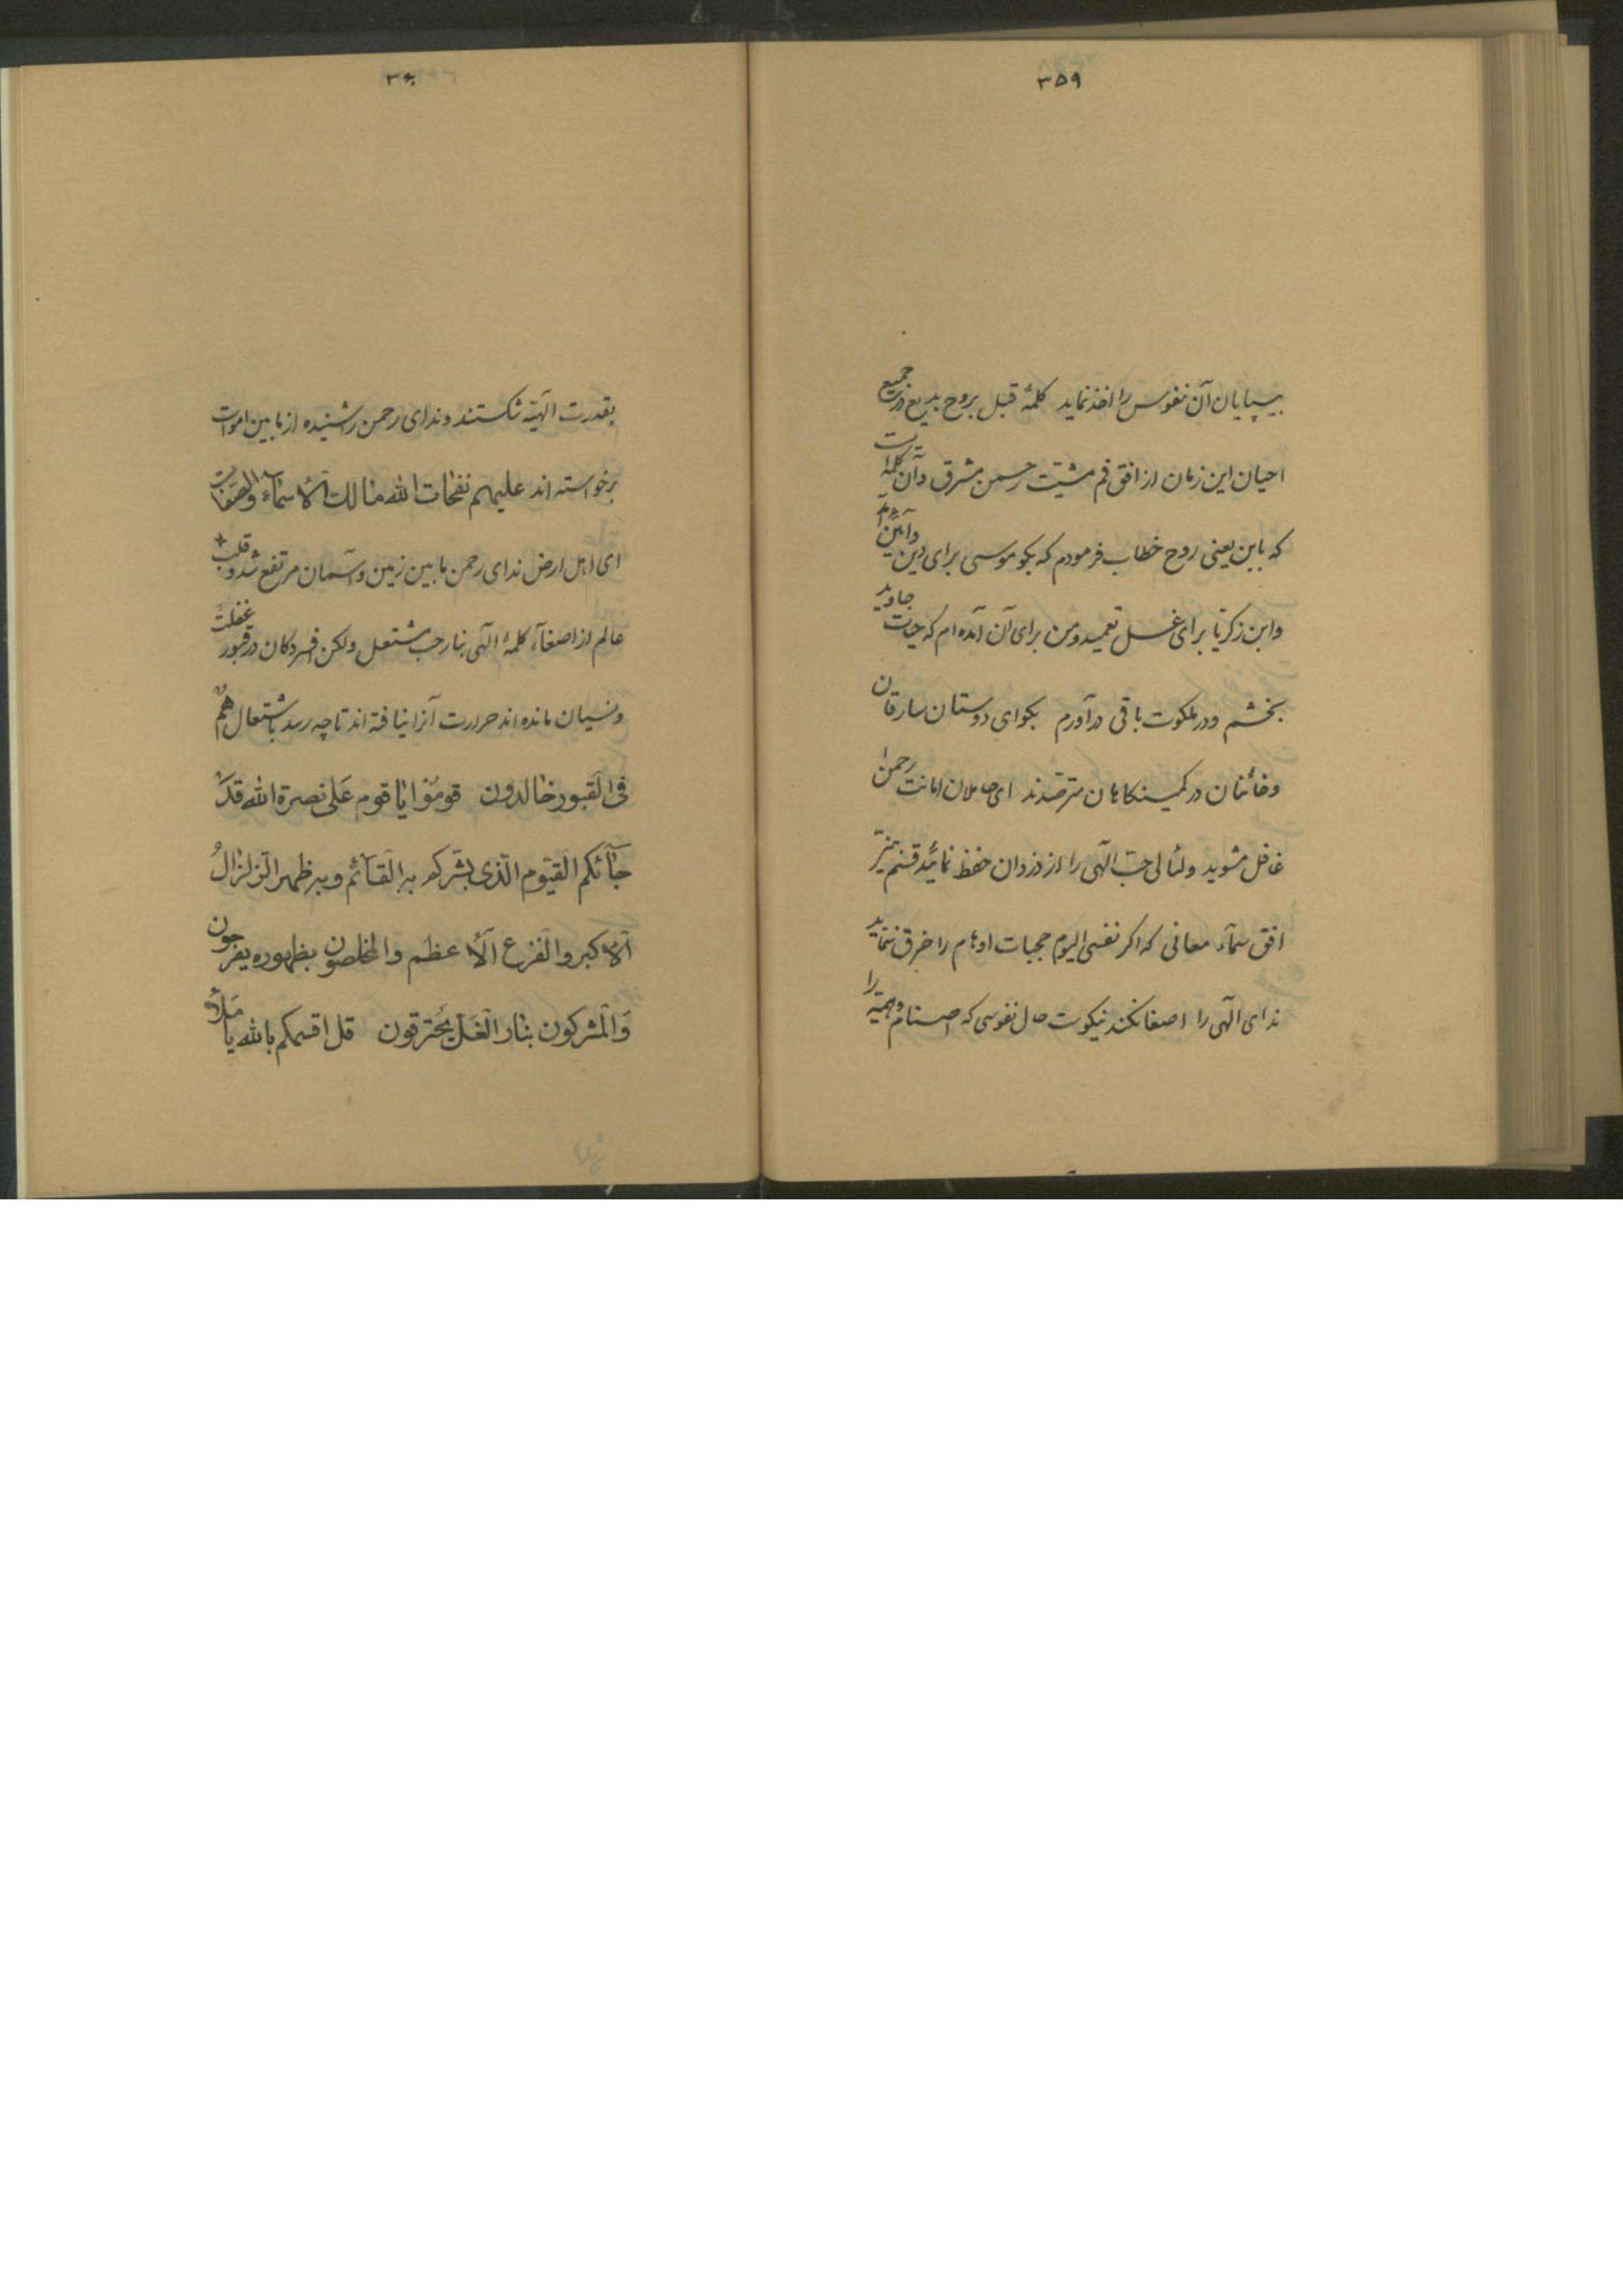 ۳۵۹
بیپایان آن نفوس را اخذ نماید کلمهٔ قبل بروح بدیع در جمیع
احیان این زمان از افق فم مشیّت رحمن مشرق و آن کلمه ایست
که بابن یعنی روح خطاب فرمودم که بگو موسی برای دین و آئین آمد
وابن زکریّا برای غسل تعمید و من برای آن آمده‌ام که حیات جاوید
بخشم و در ملکوت باقی در آورم بگو ای دوستان سارقان
و خائنان در کمینگاهان مترصّدند ای حاملان امانت رحمن
غافل مشوید و لئالی حبّ الهی را از دزدان حفظ نمائید قسم بنیّر
افق سمآء معانی که اگر نفسی الیوم حجبات اوهام را خرق ننماید
ندای الهی را اصغا نکند نیکوست حال نفوسی که اصنام وهمیّه را
۳۶۰
بقدرت الهیّه شکستند و ندای رحمن را شنیده از ما بین اموات
برخواسته اند علیهم نفحات الله مالک الأسمآء والصّفات
ای اهل ارض ندای رحمن ما بین زمین و آسمان مرتفع شد و قلب
عالم از اصغآء کلمهٔ الهی بنار حب مشتعل ولکن افسردگان در قبور غفلت
و نسیان مانده اند حرارت آنرا نیافته اند تا چه رسد باشتعال هُم
فی القبور خالدون قوموا یا قوم عَلی نصرة الله قَدْ
جآئکم القیّوم الّذی بشّرکم به القآئم و به ظهر الزّلزالُ
الأکبر والفزع الأعظم والمخلصون بظهوره یفرحون
وَالمُشرکون بنار الغلّ یحترقون قل اقسمکم بالله یا مَلأ